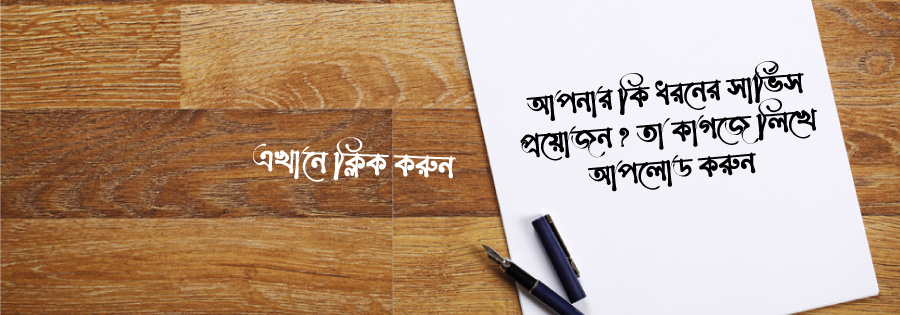 এখানে ক্লিক করুন
আপনার কি ধরনের সার্ভিস
প্রয়োজন ? তা কাগজে লিখে
আপলোড করুন